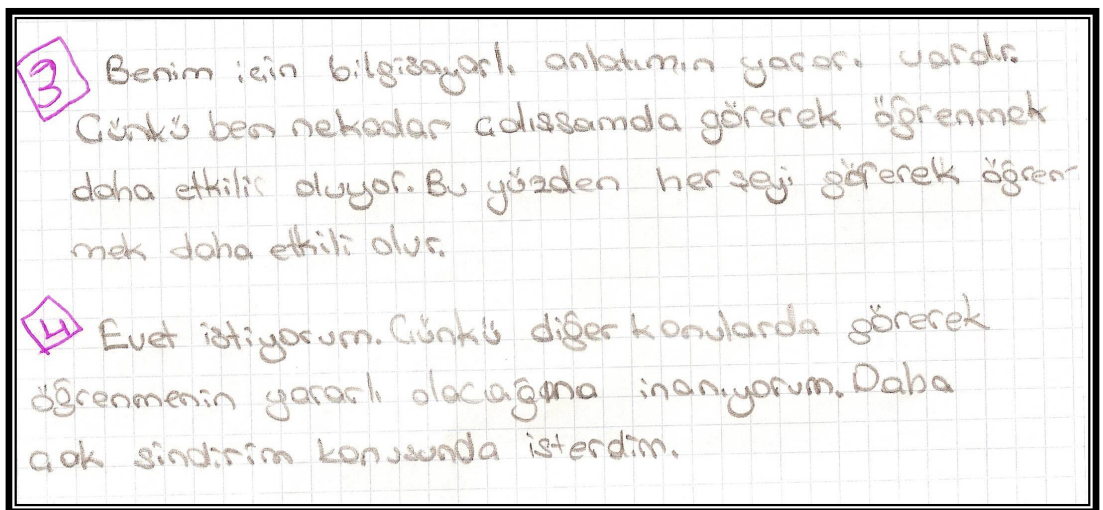 3 Benim için bilgisayarlı anlatımın yararı vardır.
Çünkü ben nekadar çalışsamda görerek öğrenmek
daha etkilic oluyor. Bu yüzden her şeyi görerek öğren-
mek daha etkili olur.
4 Evet istiyorum. Çünkü diğer konularda görerek
öğrenmenin yararlı olacağına inanıyorum. Daha
çok sindirim konusunda isterdim.